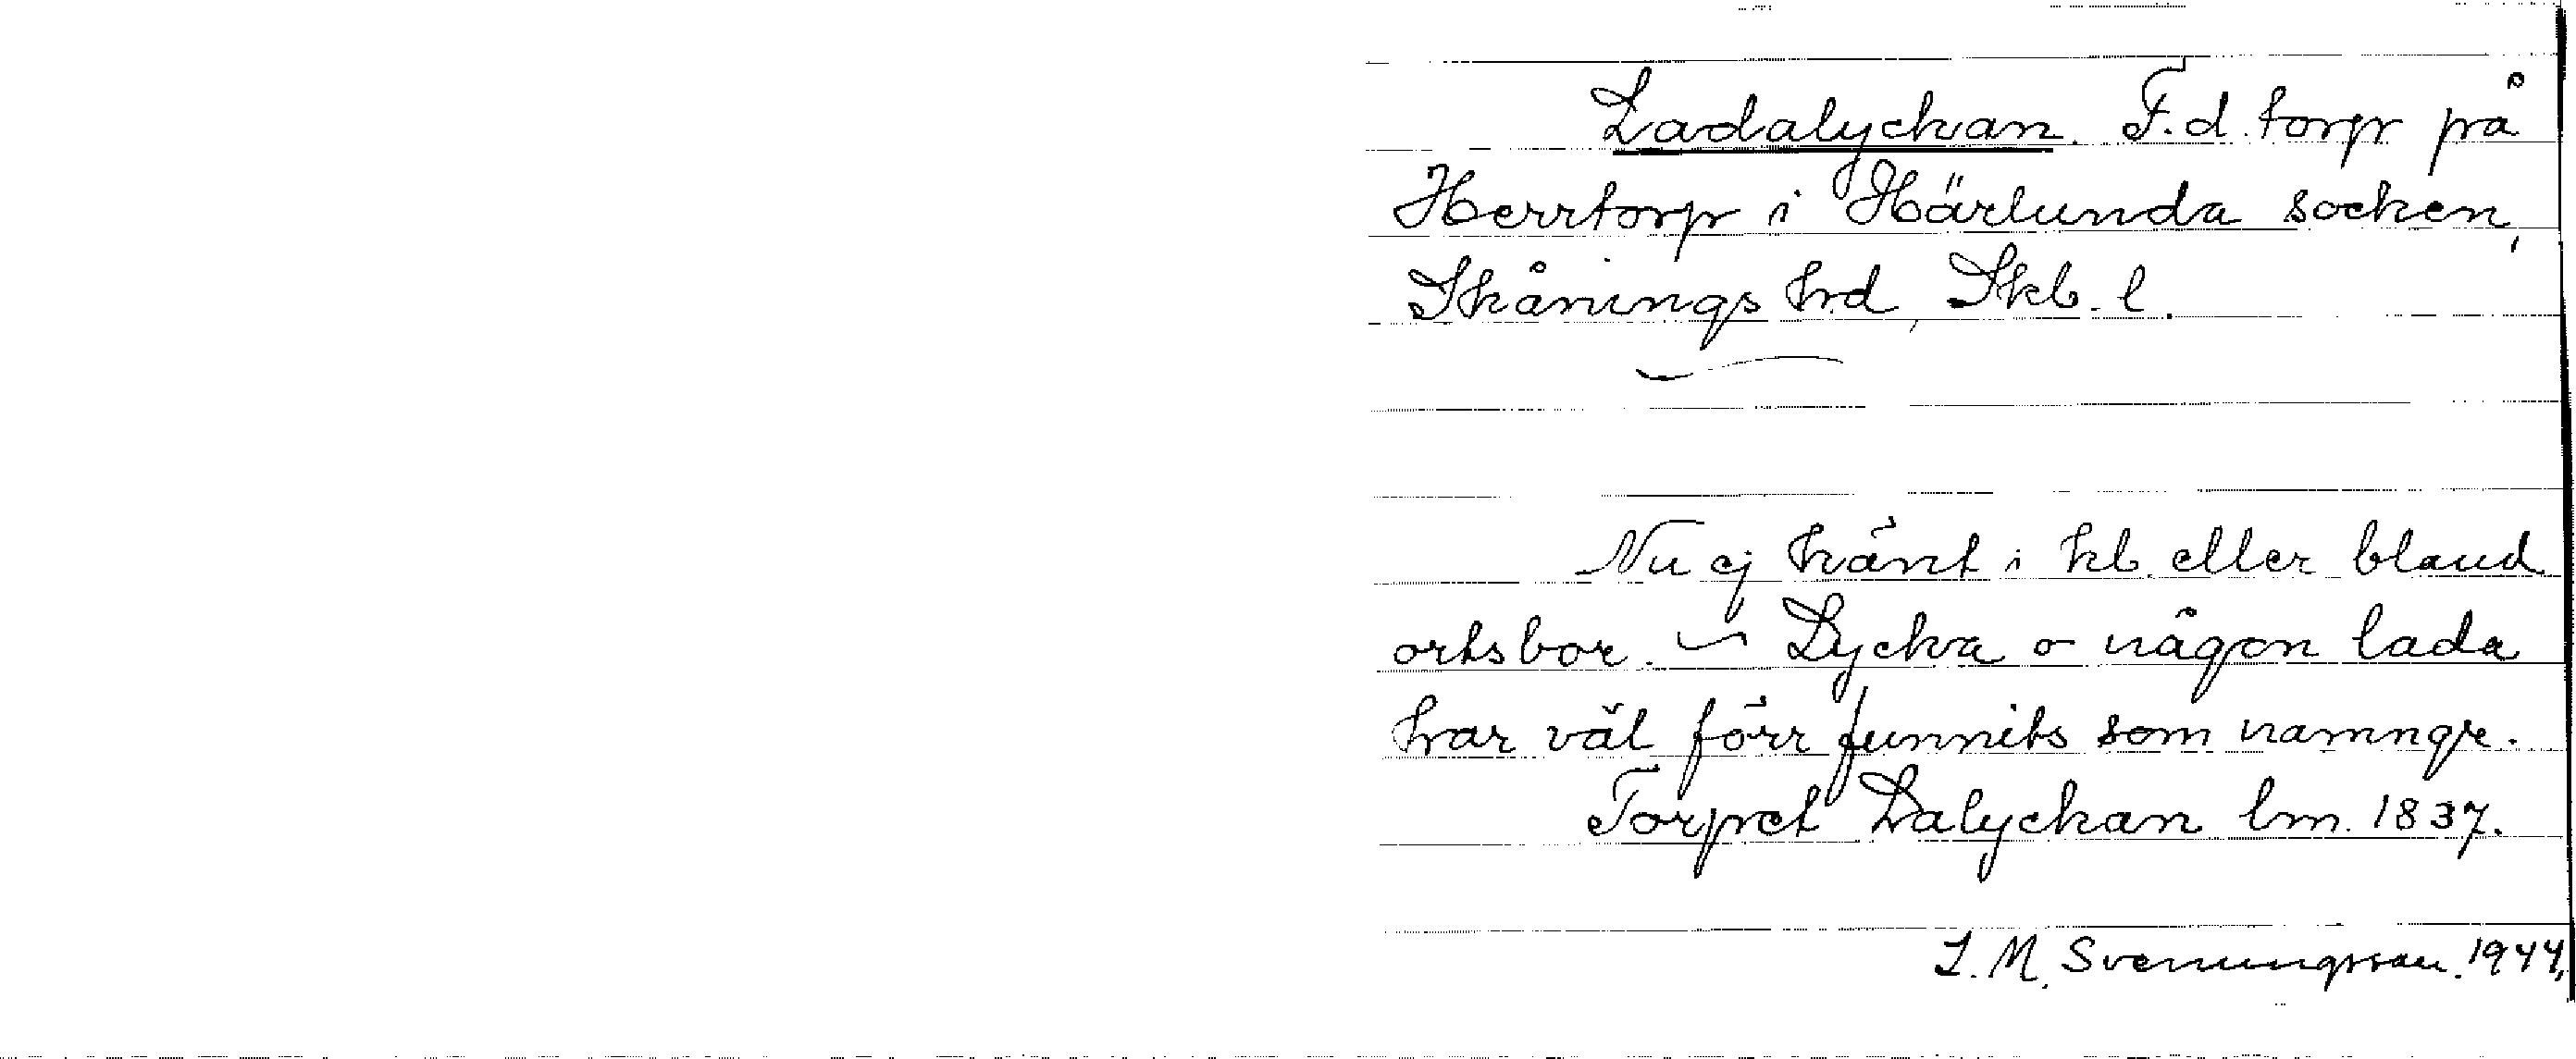 Ladalyckan. F.d. torp på
Herrtorp i Härlunda socken,
Skånings hd, Skb. l.
Nu ej känt i kb. eller bland
ortsbor. – Lycka o någon lada
har väl förr funnits som namnge.
Torpet Lalyckan lm. 1837.
J. M. Svenungsson. 1944.